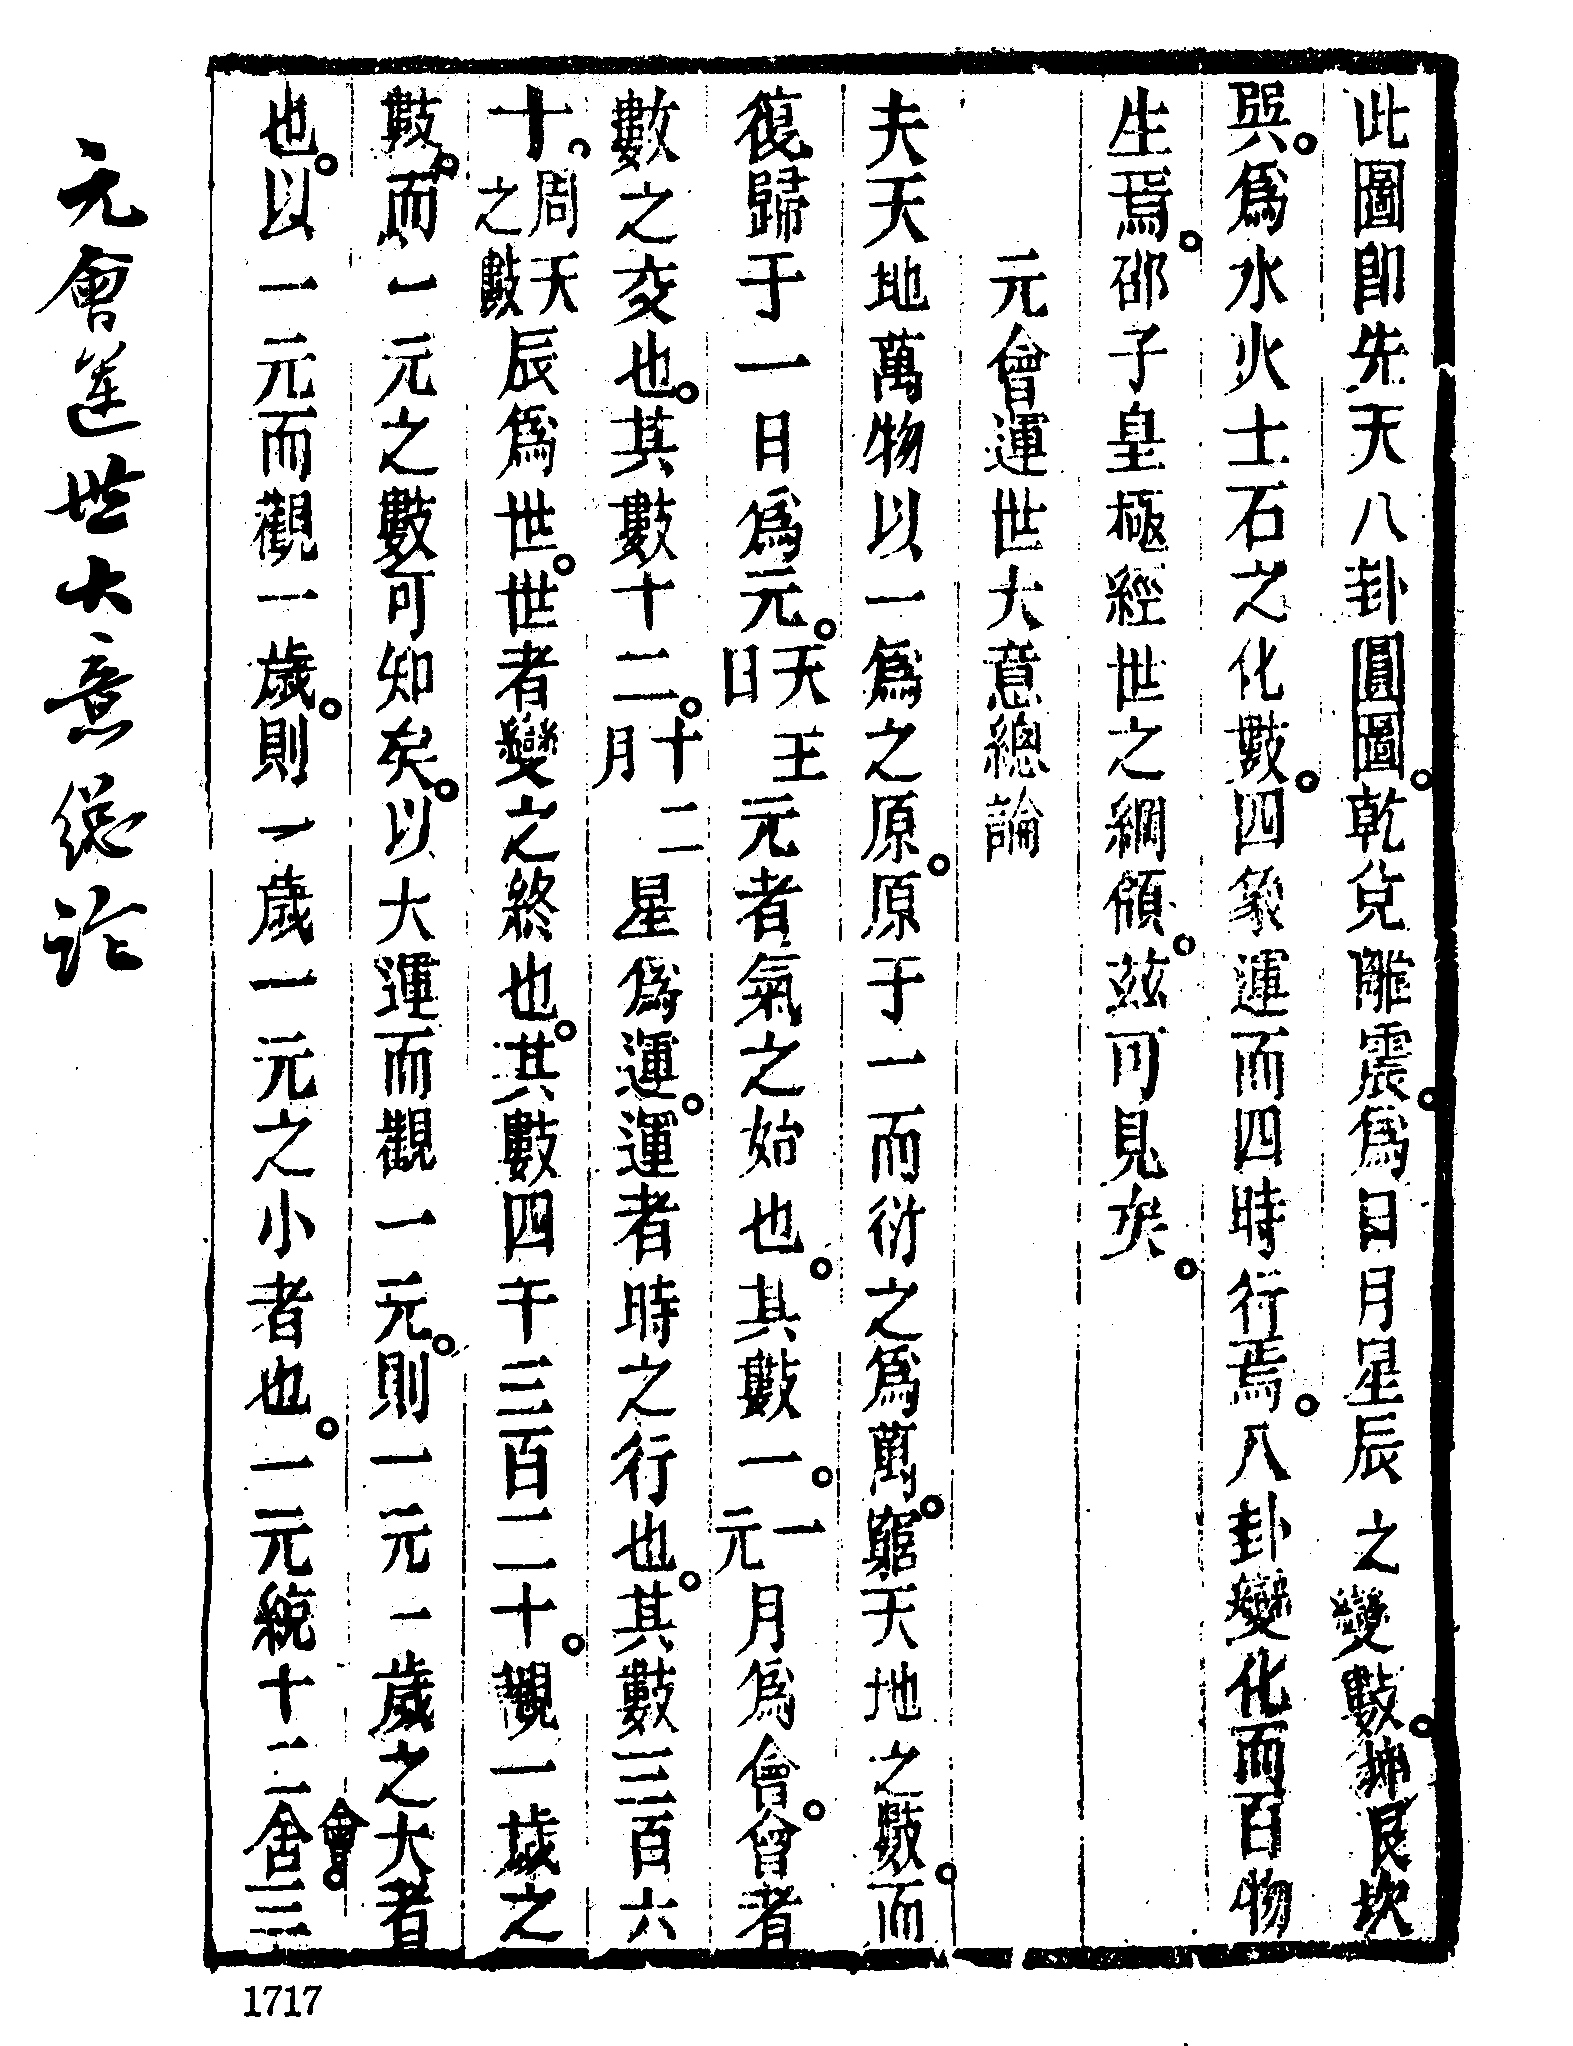 此圖即先天八卦圓圖。乾兌離震。為日月星辰之變數。坤艮坎
巽。為水火土石之化數。四象運而四時行焉。八卦變化而百物
生焉。邵子皇極經世之綱領。茲可見矣。
元會運世大意總論
夫天地萬物以一為之原。原于一而衍之為萬。窮天地之數。而
復歸于一日為元。天王日元者氣之始也。其數一。一元月為會。會者
數之交也。其數十二。十二月星為運。運者時之行也。其數三百六
十。周天之數辰為世。世者變之終也。其數四千三百二十。觀一歲之
數。而一元之數可知矣。以大運而觀一元。則一元一歲之大者
也。以一元而觀一歲。則一歲一元之小者也。一元統十二會。舍三
元會運世大意總論
1717